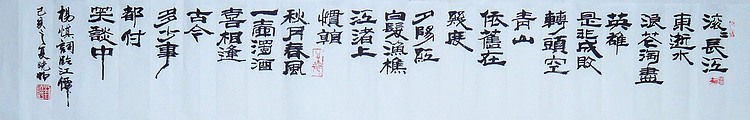 滚滚长江
東逝水
浪花淘盡
英雄
是非成敗
轉頭空
青山
依舊在
幾度
夕陽紅
白髮漁樵
江渚上
慣
秋月春風
一壺濁酒
喜相逢
古今
多少事
都付
笑談中
楊慎詞臨江僊